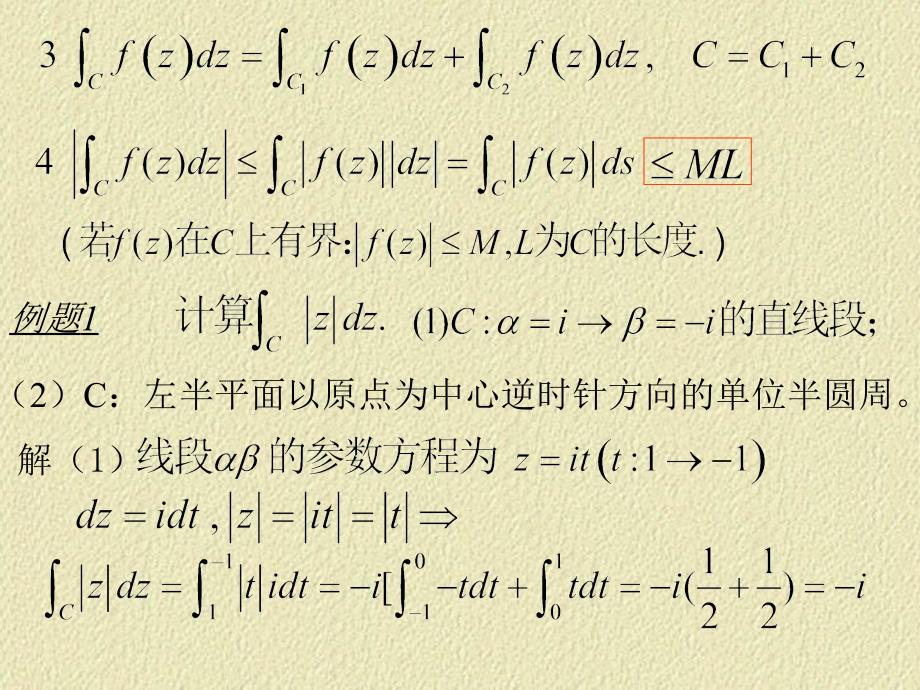 3 ∫_C f(z)dz = ∫_{C₁} f(z)dz + ∫_{C₂} f(z)dz, C = C₁ + C₂
4 |∫_C f(z)dz| ≤ ∫_C |f(z)||dz| = ∫_C |f(z)| ds ≤ ML
(若f(z)在C上有界:|f(z)| ≤ M,L为C的长度.)
例题1 计算∫_C |z| dz. (1)C : α = i → β = −i的直线段;
（2）C：左半平面以原点为中心逆时针方向的单位半圆周。
解（1）线段αβ 的参数方程为 z = it(t :1 → −1)
dz = idt , |z| = |it| = |t| ⇒
∫_C |z| dz = ∫_1^{−1} |t| idt = −i[∫_{−1}^0 −tdt + ∫_0^1 tdt = −i(1/2 + 1/2) = −i